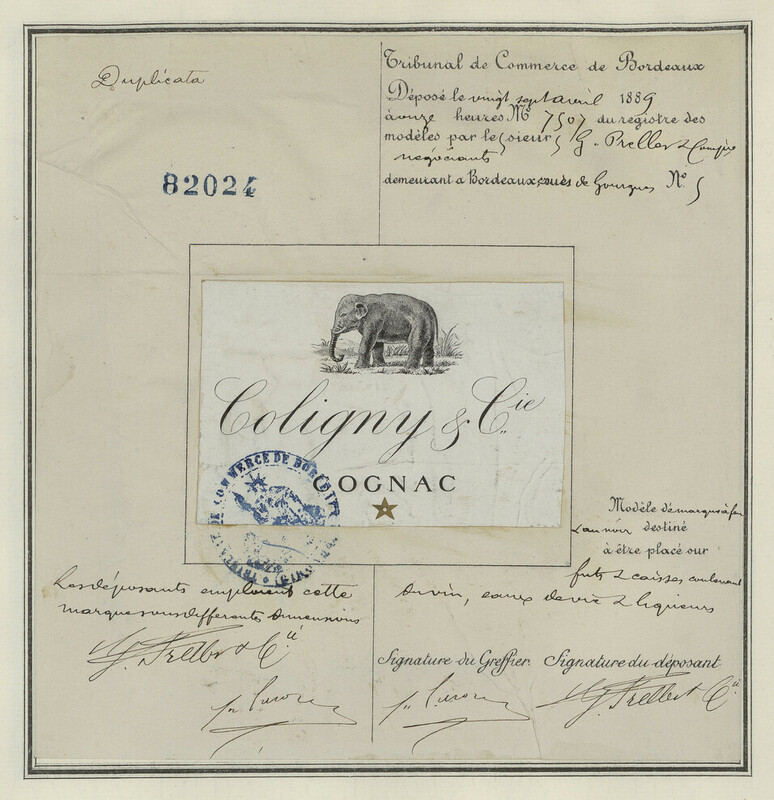 Duplicata
82024
Tribunal de Commerce de Bordeaux
Déposé le vingt sept avril 1889
à onze heures No 7507 du registre des
modèles par le sieur G. Preller & Compie
négociants
demeurant a Bordeaux, cours de Gourgues No. 5
Coligny & Cie
COGNAC
TRIBUNAL DE COMMERCE DE BORDEAUX
Modèle de marque à feu
destiné
à être placé sur
futs & caisses contenant
du vin, eaux de vie & liqueurs
Les déposants emploient cette
marque sous differentes dimensions
G. Preller & Cie
Signature du Greffier. Signature du déposant
G. Preller & Cie